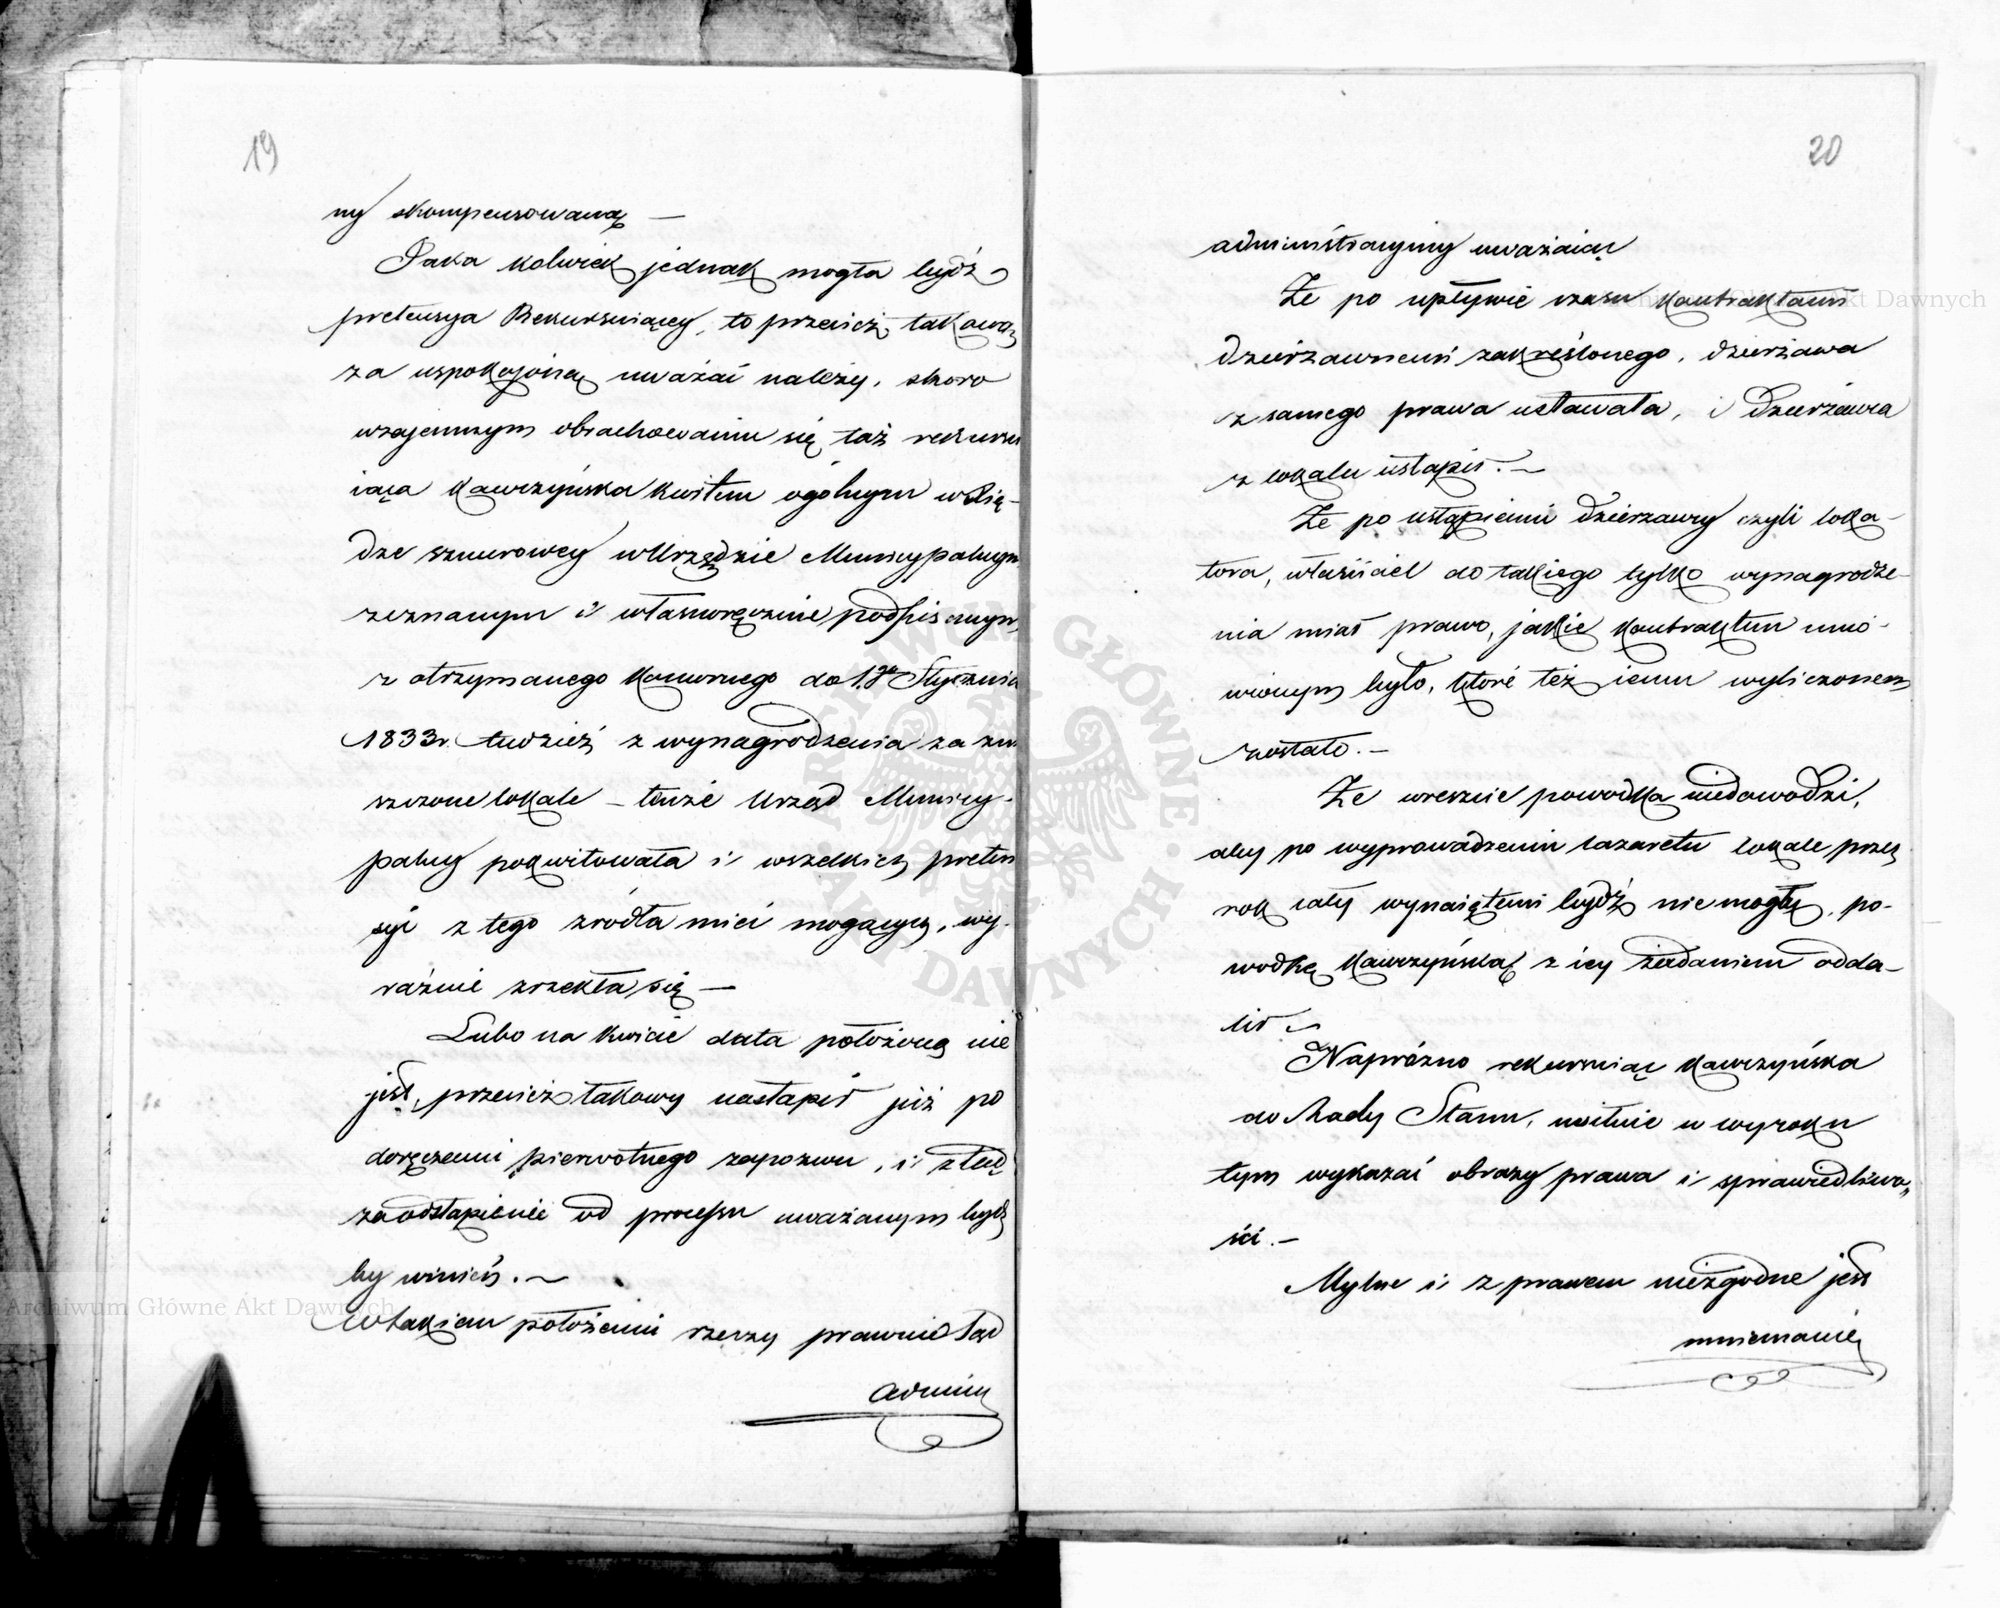 19
ny skompensowaną —
Jaka kolwiek jednak mogła bydź
pretensya Rekursuiącey, to przecież takową
za uspokojoną uważać należy, skoro
wzajemnym obrachowaniu się taż rekursu
iąca Kawczyńska kwitem ogólnym w Xię-
dze sznurowey w Urzędzie Municypalnym
zeznanym i własnoręcznie podpisanym,
z otrzymanego komornego do 1go Stycznia
1833r. tudzież z wynagrodzenia za zni
szczone lokale – tenże Urząd Municy-
palny pokwitowała i wszelkich preten
syi z tego źródła mieć mogących, wy-
raźnie zrzekła się —
Lubo na kwicie data położoną nie
jest, przecież takowy nastąpił już po
doręczeniu pierwotnego zapozwu, i ztąd
za odstąpienie od processu uważanym bydź
by winien. —
W takiem położeniu rzeczy prawnie Sąd
admini
20
administracyiny uważaiąc
Że po upływie czasu kontraktem
dzierżawnem zakreślonego, dzierżawa
z samego prawa ustawała, i dzierżawca
z lokalu ustąpił. —
Że po ustąpieniu dzierżawcy czyli loka-
tora, właściciel do takiego tylko wynagrodze-
nia miał prawo, jakie kontraktem umó-
wionym było, które też iemu wyliczonem
zostało. —
Że wreszcie powodka niedowodzi,
aby po wyprowadzeniu lazaretu lokale przez
rok cały wynaiętemi bydź nie mogły, po-
wodkę Kawczyńską z iey żądaniem odda-
lił —
Napróżno rekursuiąc Kawczyńska
do Rady Stanu, usiłuie w wyroku
tym wykazać obrazy prawa i sprawiedliwo„
ści. —
Mylne i z prawem niezgodne jest
mniemanie